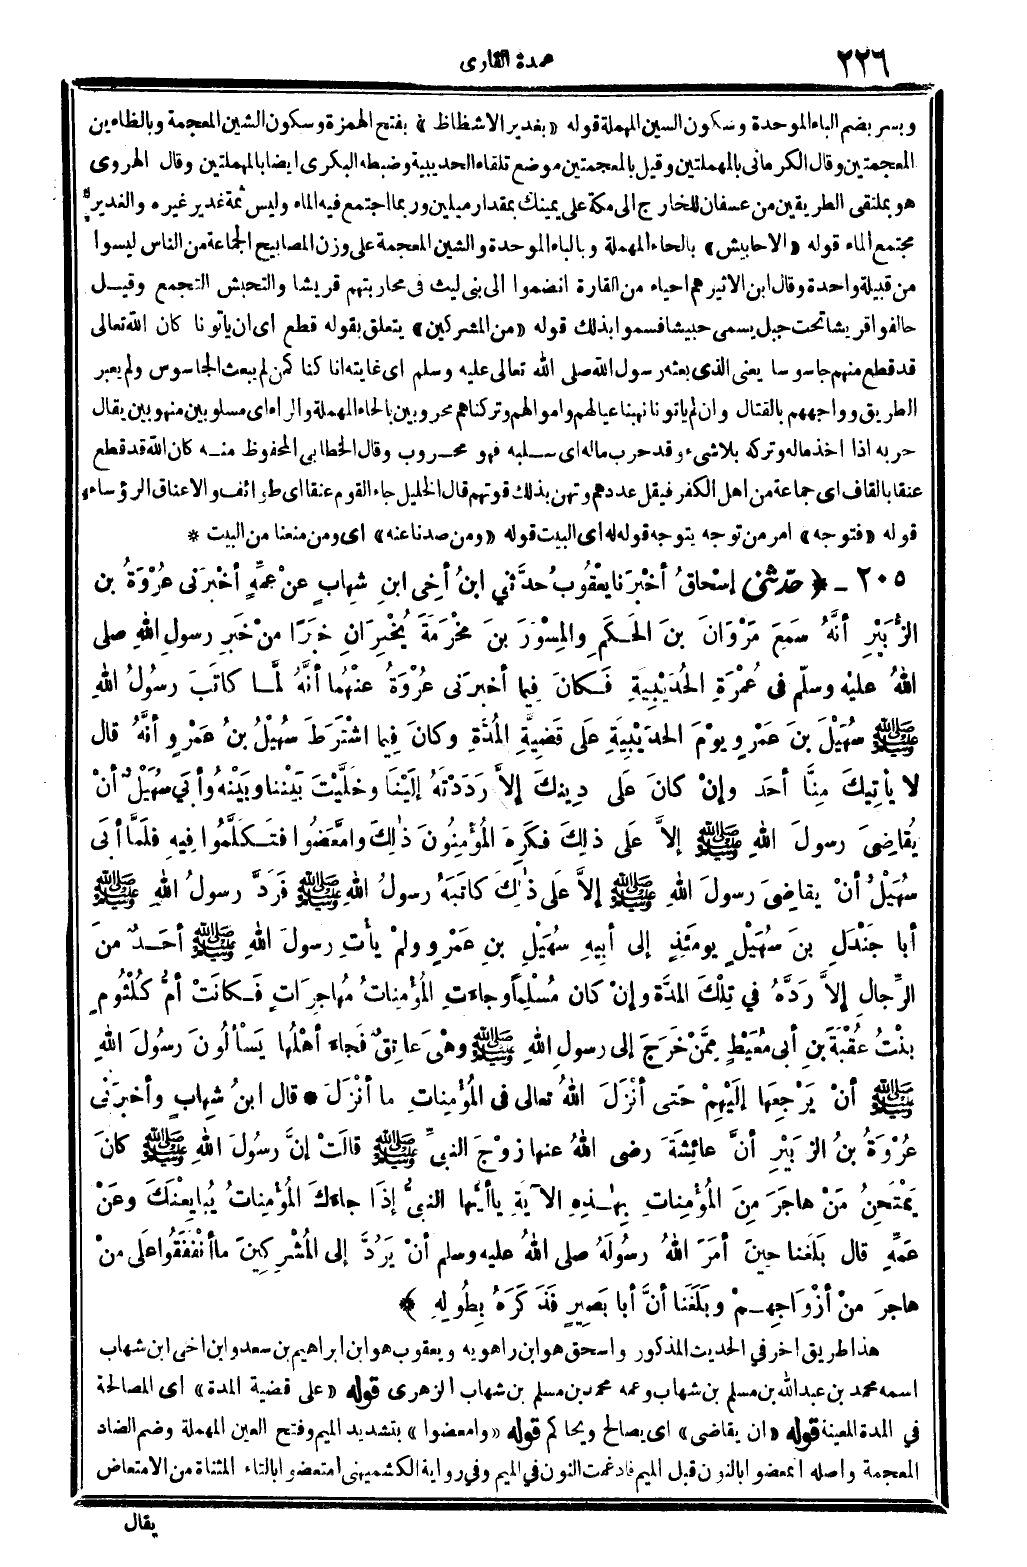 ٢٢٦
عمدة القارى
وبسر بضم الباء الموحدة وسكون السين المهملة قوله «بغدير الاشظاظ» بفتح الهمزة وسكون الشين المعجمة وبالظاءين
المعجمتين وقال الكرمانى بالمهملتين وقيل بالمعجمتين موضع تلقاء الحديبية وضبطه البكرى ايضا بالمهملتين وقال الهروى
هو بملتقى الطريقين من عسفان للخارج الى مكة على يمينك بمقدار ميلين وربما اجتمع فيه الماء وليس ثمة غدير غيره والغدير
مجتمع الماء قوله «الاحابيش» بالحاء المهملة وبالباء الموحدة والشين المعجمة على وزن المصابيح الجماعة من الناس ليسوا
من قبيلة واحدة وقال ابن الاثير هم احياء من القارة انضموا الى بنى ليث فى محاربتهم قريشا والتحبش التجمع وقيــل
حالفوا قريشا تحت جبل يسمى حبيشا فسموا بذلك قوله «من المشركين» يتعلق بقوله قطع اى ان ياتونا كان الله تعالى
قد قطع منهم جاسوسا يعنى الذى بعثه رسول الله صلى الله تعالى عليه وسلم اى غايته انا كنا كمن لم يبعث الجاسوس ولم يعبر
الطريق وواجههم بالقتال وان لم ياتونا نهبنا عيالهم واموالهم وتركناهم محروبين بالحاء المهملة والراء اى مسلوبين منهوبين يقال
حربه اذا اخذ ماله وتركه بلاشىء وقد حرب ماله اى سـلبه فهو محـروب وقال الخطابى المحفوظ منـه كان الله قد قطع
عنقا بالقاف اى جماعة من اهل الكفر فيقل عددهم وتهن بذلك قوتهم قال الخليل جاء القوم عنقا اى طوائف والاعناق الرؤساء
قوله «فتوجه» امر من توجه يتوجه قوله له اى البيت قوله «ومن صدنا عنه» اى ومن منعنا من البيت *
٢٠٥ ـ ﴿ حَدَّثَنِى إِسْحَاقُ أَخْبَرَنا يَعْقُوبُ حدَّثَنِي ابنُ أخِى ابنِ شِهابٍ عنْ عمِّهِ أخْبرَنى عُرْوَةُ بن
الزُّبَيْرِ أنَّهُ سَمِعَ مَرْوَانَ بنَ الحَكَمِ والمِسْوَرَ بنَ مَخْرَمَةَ يُخْبِرَانِ خبَرًا منْ خَبَرِ رسولِ اللهِ صلى
اللهُ عليْه وسلّم فى عُمْرَةِ الحُدَيْبِيَةِ فَكانَ فِيما أخبرَنى عُرْوَةُ عنْهُما أنَّهُ لمَّـا كاتَبَ رسُولُ اللهِ
ﷺ سُهَيْلَ بنَ عَمْرٍو يومَ الحدَيْبِيَةِ علَى قَضِيَّةِ المُدَّةِ وكانَ فِيما اشْتَرَطَ سُهَيْلُ بنُ عَمْرٍو أنَّهُ قال
لا يأْتِيكَ مِنَّا أحَد وإنْ كانَ علَى دِينِكَ إلاَّ رَدَدْتَهُ إلَيْنَا وخَلَّيْتَ بَيْنَنا وبَيْنَهُ وأبَي سُهَيْلٌ أنْ
يُقاضِىَ رسولَ اللهِ ﷺ إلاَّ علَى ذلِكَ فكَرِهَ المُؤْمِنُونَ ذٰلِكَ وامَّعَضُوا فتَـكَلَّمُوا فِيهِ فلَمَّا أبَى
سُهَيْلٌ أنْ يقاضِىَ رسولَ اللهِ ﷺ إلاَّ علَى ذٰلِكَ كاتَبَهُ رسولُ اللهِ ﷺ فَرَدَّ رسولُ اللهِ ﷺ
أبا جَنْدَلِ بنَ سُهَيْلٍ يومَئِذٍ إلى أبِيهِ سُهَيْلِ بنِ عَمْرٍو ولمْ يأْتِ رسولَ اللهِ ﷺ أحَـدٌ منَ
الرِّجالِ إلاَّ رَدَّهُ في تِلْكَ المدَّةِ وإنْ كان مُسْلِماً وجاءَتِ المُؤْمِناتُ مُهاجِرَاتٍ فَـكانَتْ أمُّ كُلْثُومٍ
بِنْتُ عُقْبَةَ بنِ أبى مُعَيْطٍ مِمَّنْ خَرَجَ إلى رسولِ اللهِ ﷺ وهْىَ عاتِقٌ فَجاءَ أهْلُها يَسْألُونَ رسُولَ اللهِ
ﷺ أنْ يَرْجِعَها إلَيْهِمْ حَتى أنْزَلَ اللهُ تعالى فى المُؤْمِناتِ ما أنْزَلَ * قال ابنُ شِهابٍ وأخبرَنى
عُرْوَةُ بنُ الزُّبَيْرِ أنَّ عائِشَةَ رضى اللهُ عنها زوْجَ النبيِّ ﷺ قالَتْ إنَّ رسُولَ اللهِ ﷺ كانَ
يَمْتَحِنُ مَنْ هاجَرَ مِنَ المُؤْمِناتِ بِهٰـذِهِ الآيَةِ ياأيُّها النبيُّ إذَا جاءَكَ المُؤْمِناتُ يُبايِعْنَكَ وعَنْ
عَمِّهِ قال بَلَغَنا حِينَ أمَرَ اللهُ رسُولَهُ صلى اللهُ عليه وسلم أنْ يَرُدَّ إلى المُشْرِكِينَ ماأنْفَقُوا علَى منْ
هاجرَ منْ أزْوَاجِهِـمْ وبَلَغَنا أنَّ أبا بَصِيرٍ فَذَكَرَهُ بِطُولِهِ ﴾
هذا طريق اخر في الحديث المذكور واسحق هو ابن راهويه ويعقوب هو ابن ابراهيم بن سعد وابن اخى ابن شهاب
اسمه محمد بن عبدالله بن مسلم بن شهاب وعمه محمد بن مسلم بن شهاب الزهرى قوله «على قضية المدة» اى المصالحة
في المدة المعينة قوله «ان يقاضى» اى يصالح ويحاكم قوله «وامعضوا» بتشديد الميم وفتح العين المهملة وضم الضاد
المعجمة واصله انمعضوا بالنون قبل الميم فادغمت النون في الميم وفي رواية الكشميهنى امتعضوا بالتاء المثناة من الامتعاض
يقال